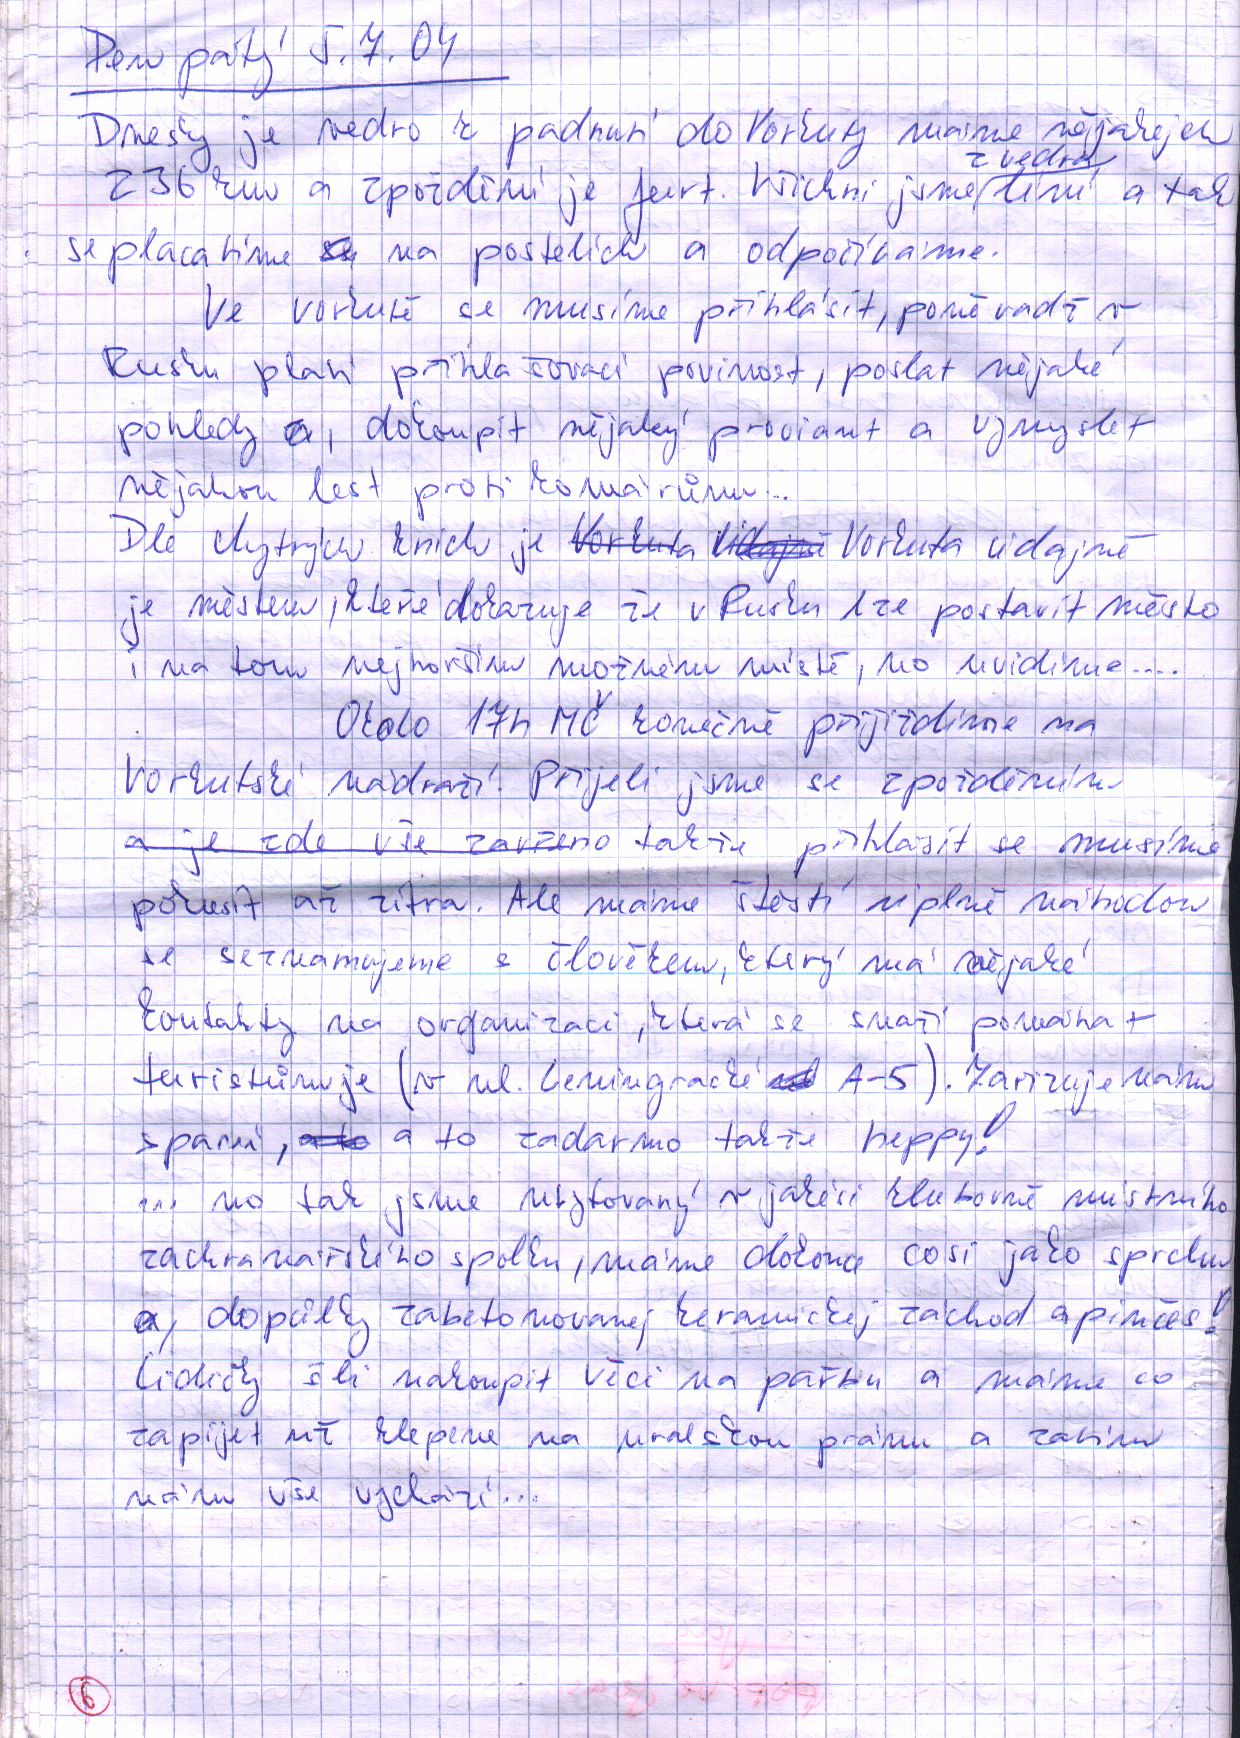 Den pátý 5.7.04
Dnesky je vedro k padnutí do Vorkuty máme nějakejch
236 km a zpoždění je furt. Všichni jsme z vedra líní a tak
se placatíme na postelích a odpočíváme.
Ve Vorkutě se musíme přihlásit, poněvadž v
Rusku platí přihlašovací povinost, poslat nějaké
pohledy, dokoupit nějaký proviant a vymyslet
nějakou lest proti komárům...
Dle chytrých knich je Vorkuta údajně Vorkuta údajně
je městem, které dokazuje že v Rusku lze postavit město
i na tom nejhorším možném místě, no uvidíme....
Okolo 17h MČ konečně přijíždíme na
Vorkutské nádraží. Přijeli jsme se zpožděním
a je zde vše zavřeno takže přihlásit se musíme
pokusit až zítra. Ale máme štěstí úplně náhodou
se seznamujeme s člověkem, který má nějaké
kontakty na organizaci, která se snaží pomáhat
turistům je (v ul. Leningracké A-5). Zařizuje nám
spaní, a to a to zadarmo takže heppy!
... no tak jsme ubytovaný v jakési klubovně místního
záchranářského spolku, máme dokonce cosi jako sprchu
a, dopůlky zabetonovanej keramickej záchod a pinčes!
Lidičky šli nakoupit věci na pařbu a máme co
zapíjet už klepeme na uralskou bránu a zatím
nám vše vychází...
6